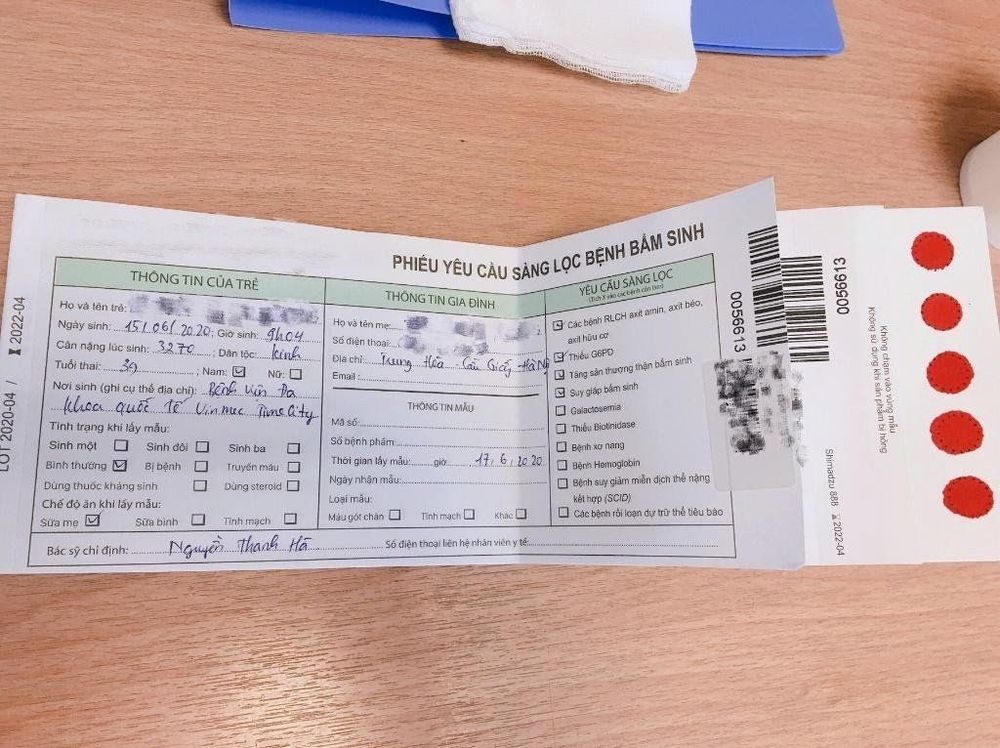 PHIẾU YÊU CẦU SÀNG LỌC BỆNH BẨM SINH
THÔNG TIN CỦA TRẺ
Họ và tên trẻ:
Ngày sinh: 15/06/2020; Giờ sinh: 9h04
Cân nặng lúc sinh: 3270; Dân tộc: Kinh
Tuổi thai: 39; Nam: ☑ Nữ: ☐
Nơi sinh (ghi cụ thể địa chỉ): Bệnh viện Đa
khoa quốc tế Vinmec TimeCity
Tình trạng khi lấy mẫu:
Sinh một ☐ Sinh đôi ☐ Sinh ba ☐
Bình thường ☑ Bị bệnh ☐ Truyền máu ☐
Dùng thuốc kháng sinh ☐ Dùng steroid ☐
Chế độ ăn khi lấy mẫu:
Sữa mẹ ☑ Sữa bình ☐ Tĩnh mạch ☐
THÔNG TIN GIA ĐÌNH
Họ và tên mẹ:
Số điện thoại:
Địa chỉ: Trung Hòa - Cầu Giấy - Hà Nội
Email:
THÔNG TIN MẪU
Mã số:
Số bệnh phẩm:
Thời gian lấy mẫu: giờ 17.6.2020
Ngày nhận mẫu:
Loại mẫu:
Máu gót chân ☐ Tĩnh mạch ☐ Khác ☐
YÊU CẦU SÀNG LỌC
(Tích X vào các bệnh cần làm)
☑ Các bệnh RLCH axit amin, axit béo,
axit hữu cơ
☑ Thiếu G6PD
☑ Tăng sản thượng thận bẩm sinh
☑ Suy giáp bẩm sinh
☐ Galactosemia
☐ Thiếu Biotinidase
☐ Bệnh xơ nang
☐ Bệnh Hemoglobin
☐ Bệnh suy giảm miễn dịch thể nặng
kết hợp (SCID)
☐ Các bệnh rối loạn dự trữ thể tiêu bào
Bác sỹ chỉ định: Nguyễn Thanh Hà Số điện thoại liên hệ nhân viên y tế:
LOT 2020-04 / ⧗ 2022-04
0056613
0056613
Không chạm vào vùng mẫu
Không sử dụng khi sản phẩm bị hỏng
Shimadzu 888 ⧗ 2022-04